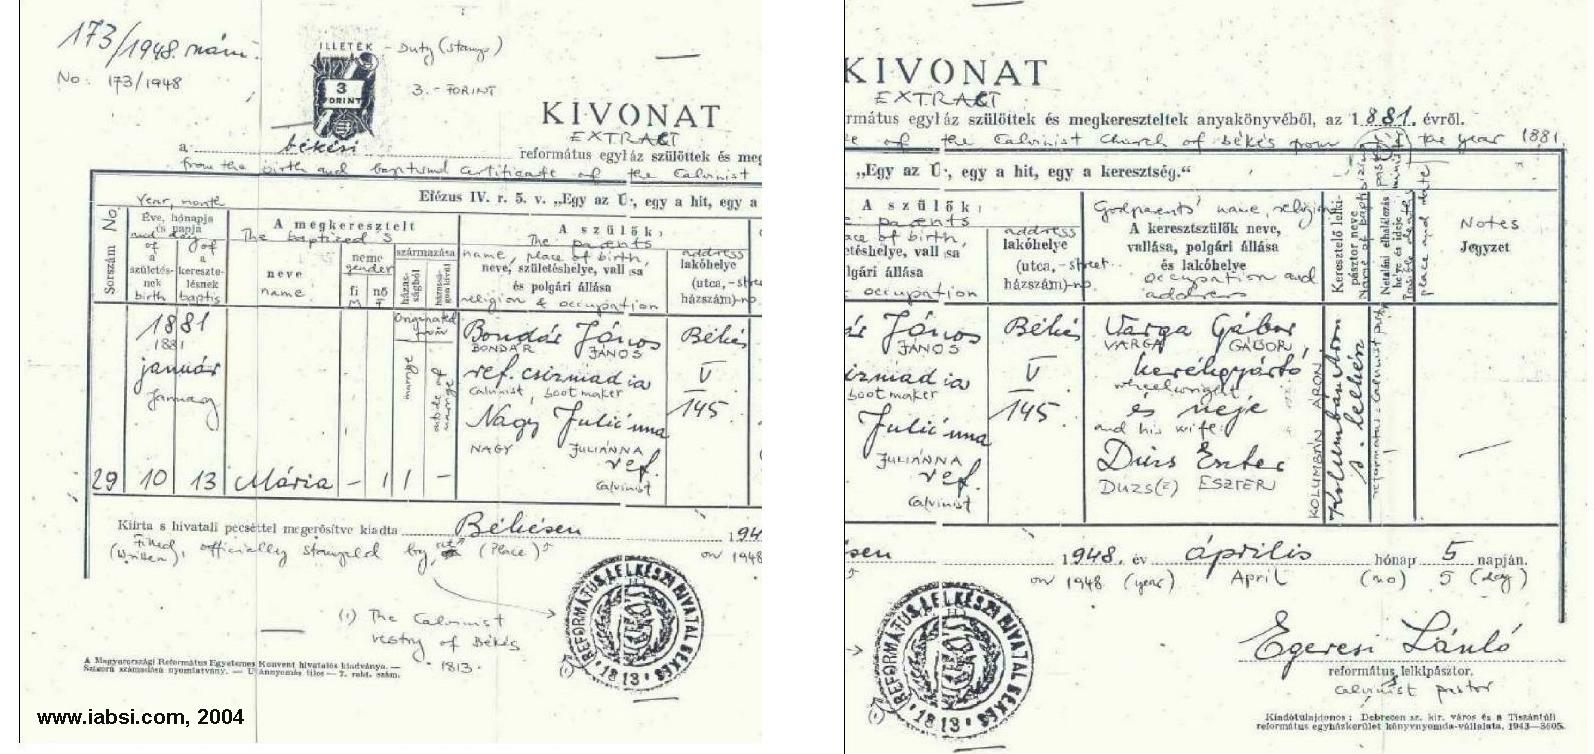 173/1948. szám.
No. 173/1948
ILLETÉK - Duty (stamp)
3 FORINT
3.- FORINT
KIVONAT
EXTRACT
a békési református egyház szülöttek és meg
from the birth and baptismal certificate of the Calvinist
Efézus IV. r. 5. v. „Egy az Úr, egy a hit, egy a
Sorszám No.
Year, month
Éve, hónapja és napja
and day
of a születésnek birth
of a keresztelésnek baptis
A megkeresztelt
The baptized's
neve
name
neme
gender
fi M
nő F
származása
házasságból
Originated from
marriage
outside of marriage
A szülők:
The parents
name, place of birth,
neve, születéshelye, vallása
és polgári állása
religion & occupation
address
lakóhelye
(utca, -street
házszám)-no.
1881
1881
január
January
29 10 13 Mária - 1 1 -
Bondár János
BONDÁR JÁNOS
ref. csizmadia
Calvinist, bootmaker
Nagy Juliánna
NAGY JULIÁNNA
ref.
Calvinist
Békés
V
145
Kiírta s hivatali pecséttel megerősítve kiadta Békésen 194
Filled (Written), officially stamped by (Place) on 1948
(1) The Calvinist
vestry of Békés
- 1813 -
REFORMÁTUS LELKÉSZI HIVATAL BÉKÉS
• 1813 •
(1)
A Magyarországi Református Egyetemes Konvent hivatalos kiadványa. —
Szigorú számadású nyomtatvány. — Utánnyomás tilos — 7. rakt. szám.
www.iabsi.com, 2004
KIVONAT
EXTRACT
rmátus egyház szülöttek és megkereszteltek anyakönyvéből, az 1881. évről.
of the Calvinist Church of Békés from the year 1881.
„Egy az Úr, egy a hit, egy a keresztség.“
A szülők:
parents
ace of birth,
letéshelye, vallása
lgári állása
occupation
address
lakóhelye
(utca, -street
házszám)-no.
Godparents' name, religion
A keresztszülők neve,
vallása, polgári állása
és lakóhelye
occupation and
address
Keresztelő lelkipásztor neve
Netaláni elhalálozás helye és ideje
place and date
Notes
Jegyzet
ár János
JÁNOS
izmadia
bootmaker
Juliánna
JULIÁNNA
ref.
Calvinist
Békés
V
145.
Varga Gábor
VARGA GÁBOR,
kerékgyártó
wheelwright
és neje
and his wife:
Duzs Eszter
DUZS(Z) ESZTER
KOLUMBÁN ÁRON
Kolumbán Áron
s. lelkész
sen 1948. év április hónap 5 napján.
on 1948 (year) April (mo) 5 (day)
REFORMÁTUS LELKÉSZI HIVATAL BÉKÉS
• 1813 •
(1)
Egeresi László
református lelkipásztor.
calvinist pastor
Kiadótulajdonos: Debrecen sz. kir. város és a Tiszántúli
református egyházkerület könyvnyomda-vállalata. 1943—3605.